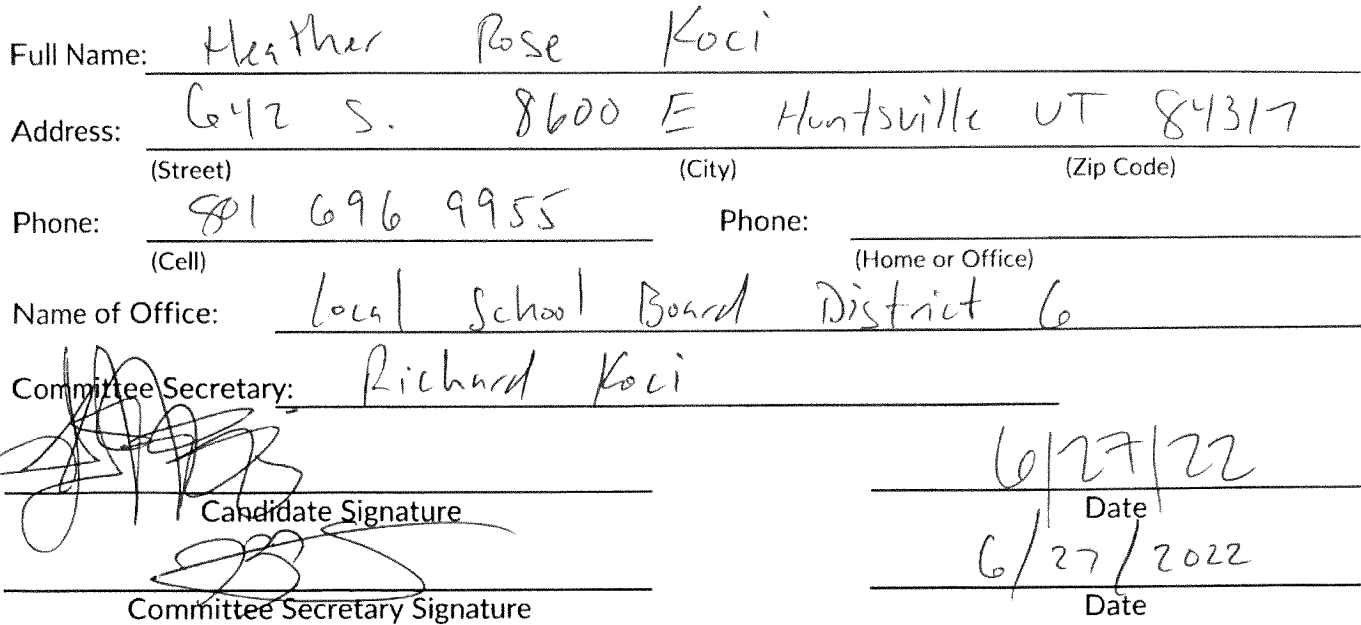 Full Name: Heather Rose Koci
Address: 642 S. 8600 E Huntsville UT 84317
(Street) (City) (Zip Code)
Phone: 801 696 9955 Phone:
(Cell) (Home or Office)
Name of Office: Local School Board District 6
Committee Secretary: Richard Koci
6/27/22
Candidate Signature Date
6/27/2022
Committee Secretary Signature Date